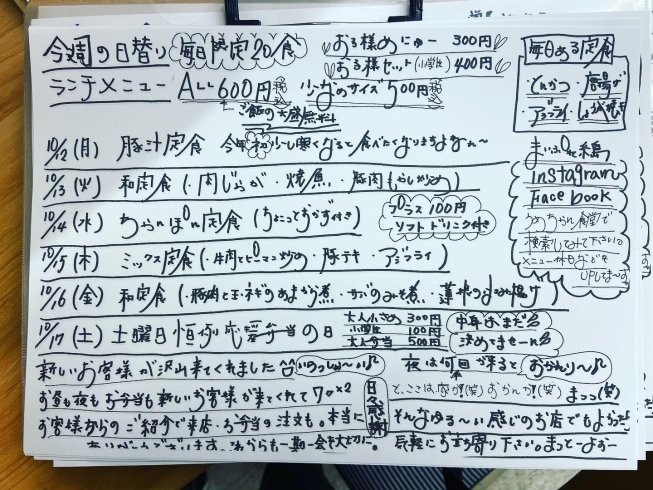 今週の日替り 毎日限定20食
ランチメニュー ALL 600円 税込
ご飯の大盛無料
小さなのサイズ 500円 税込
お子様めにゅー 300円
お子様セット(小学生) 400円
毎日ある定食
・とんかつ ・唐揚げ
・アジフライ ・しょうが焼き
10/12 (月) 豚汁定食 今年初 少し寒くなると食べたくなりますよねぇ〜
10/13 (火) 和定食 (・肉じゃが ・焼魚 ・豚肉もやし炒め)
10/14 (水) ちらし定食 (ちょこっとおかず付き)
プラス100円
ソフトドリンク付き
10/15 (木) ミックス定食 (・牛肉とピーマン炒め ・豚テキ ・アジフライ)
10/16 (金) 和定食 (・豚肉と玉ネギのあまから煮 ・サバのみそ煮 ・蓮根の揚げ)
10/17 (土) 土曜日恒例応援弁当の日
大人小さめ 300円
小学生 100円
大人弁当 500円
中身はまだ
決めてませーん
まいぷれ 掲
Instagram
Facebook
うめちゃん食堂で
検索してみて下さい
メニューなども
UPしてまーす
新しいお客様が沢山来てくれました
いのっしゅーい♪
お昼も夜もお弁当も新しいお客様が来てくれてワクワク×2
お客様からのご紹介で来店・お弁当の注文も。本当に
ありがとうございます。これからも一期一会を大切に。
日々感謝
夜は何回か来ると おかんり〜♪
と、ここは家か!(笑) おかんか!(笑) まっっ(笑)
そんなゆる〜い感じのお店でもよかったら
気軽にお立ち寄り下さい。まっとーよぉー